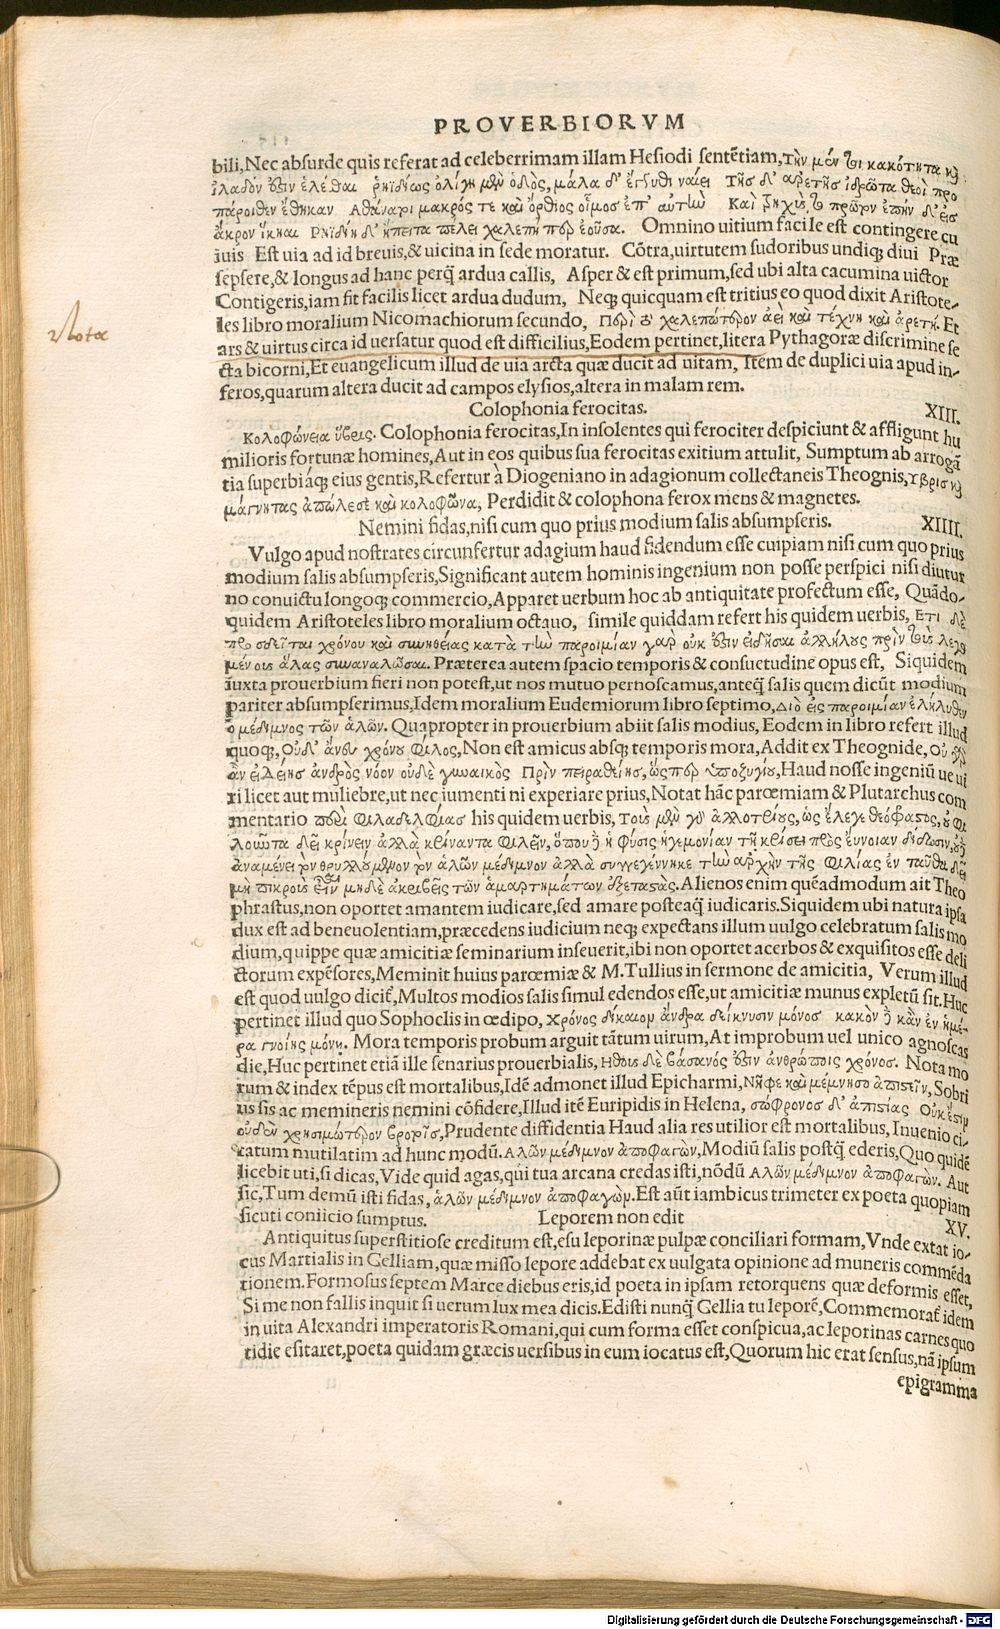 PROVERBIORVM
bili,Nec absurde quis referat ad celeberrimam illam Hesiodi sentẽtiam,Τὴν μέν τοι κακότητα καὶ
ἰλαδὸν ἔστιν ἑλέσθαι ῥηϊδίως ὀλίγη μὲν ὁδὸς, μάλα δ' ἐγγυθι ναίει Τῆς δ' ἀρετῆς ἱδρῶτα θεοὶ προ
πάροιθεν ἔθηκαν Ἀθάνατοι μακρός τε καὶ ὄρθιος οἶμος ἐπ' αυτὴν Καὶ τρηχὺς τὸ πρῶτον ἐπὴν δ' εἰς
ἄκρον ἵκηαι Ρηϊδίη δ' ἤπειτα πέλει χαλεπή περ ἐοῦσα. Omnino uitium facile est contingere cu
iuis Est uia ad id breuis,& uicina in sede moratur. Cõtra,uirtutem sudoribus undiq; diui Præ
sepsere,& longus ad hanc perq̃ ardua callis, Asper & est primum,sed ubi alta cacumina uictor
Contigeris,iam fit facilis licet ardua dudum, Neq; quicquam est tritius eo quod dixit Aristote-
Nota
les libro moralium Nicomachiorum secundo, Περὶ δὲ χαλεπώτερον ἀεὶ καὶ τέχνη καὶ ἀρετή. Et
ars & uirtus circa id uersatur quod est difficilius,Eodem pertinet,litera Pythagoræ discrimine se
cta bicorni,Et euangelicum illud de uia arcta quæ ducit ad uitam, Item de duplici uia apud in-
feros,quarum altera ducit ad campos elysios,altera in malam rem.
Colophonia ferocitas. XIII.
Κολοφώνεια ὕβρις. Colophonia ferocitas,In insolentes qui ferociter despiciunt & affligunt hu
milioris fortunæ homines,Aut in eos quibus sua ferocitas exitium attulit, Sumptum ab arrogã
tia superbiáq; eius gentis,Refertur à Diogeniano in adagionum collectaneis Theognis,Υβρις καὶ
μάγνητας ἀπώλεσε καὶ κολοφῶνα, Perdidit & colophona ferox mens & magnetes.
Nemini fidas,nisi cum quo prius modium salis absumpseris. XIIII.
Vulgo apud nostrates circunfertur adagium haud fidendum esse cuipiam nisi cum quo prius
modium salis absumpseris,Significant autem hominis ingenium non posse perspici nisi diutur
no conuictu longoq; commercio,Apparet uerbum hoc ab antiquitate profectum esse, Quãdo-
quidem Aristoteles libro moralium octauo, simile quiddam refert his quidem uerbis, ΕΤΙ δὲ
προσδεῖται χρόνου καὶ συνηθείας κατὰ τὴν παροιμίαν γὰρ οὐκ ἔστιν εἰδῆσαι ἀλλήλους πρὶν τοὺς λεγο
μένους ἅλας συναναλῶσαι. Præterea autem spacio temporis & consuetudine opus est, Siquidem
iuxta prouerbium fieri non potest,ut nos mutuo pernoscamus,anteq̃ salis quem dicũt modium
pariter absumpserimus,Idem moralium Eudemiorum libro septimo,Διὸ εἰς παροιμίαν ἐλήλυθεν
ὁ μέδιμνος τῶν ἁλῶν. Quapropter in prouerbium abiit salis modius, Eodem in libro refert illud
quoq;, Οὐδ' ἄνευ χρόνου φίλος,Non est amicus absq; temporis mora,Addit ex Theognide, Οὐ γὰρ
ἂν εἰδείης ἀνδρὸς νόον οὐδὲ γυναικὸς Πρὶν πειραθείης, ὥσπερ ὑποζυγίου,Haud nosse ingeniũ ue ui
ri licet aut muliebre,ut nec iumenti ni experiare prius,Notat hãc parœmiam & Plutarchus com
mentario περὶ φιλαδελφίας his quidem uerbis, Τοὺς μὲν γὰρ ἀλλοτρίους, ὡς ἔλεγε θεόφραστος, οὐ φι
λοῦντα δεῖ κρίνειν ἀλλὰ κρίναντα φιλεῖν, ὅπου δὲ ἡ φύσις ἡγεμονίαν τῇ κρίσει πρὸς ἔυνοιαν δίδωσιν,οὐδὲ
ἀναμένει τὸν θρυλλούμενον τὸν ἁλῶν μέδιμνον ἀλλὰ συγγεγέννηκε τὴν ἀρχὴν τῆς φιλίας ἐν ταῦθα δεῖ
μὴ πικροὺς εἶναι μηδὲ ἀκριβεῖς τῶν ἁμαρτημάτων ἐξεταστάς. Alienos enim quẽadmodum ait Theo
phrastus,non oportet amantem iudicare,sed amare posteaq̃ iudicaris.Siquidem ubi natura ipsa
dux est ad beneuolentiam,præcedens iudicium neq; expectans illum uulgo celebratum salis mo
dium,quippe quæ amicitiæ seminarium inseuerit,ibi non oportet acerbos & exquisitos esse deli
ctorum expẽsores,Meminit huius parœmiæ & M.Tullius in sermone de amicitia, Verum illud
est quod uulgo dicit̃,Multos modios salis simul edendos esse,ut amicitiæ munus expletũ sit.Huc
pertinet illud quo Sophoclis in œdipo, Χρόνος δίκαιον ἄνδρα δείκνυσιν μόνος κακὸν δὲ κἂν ἐν ἡμέ-
ρᾳ γνοίης μόνῃ. Mora temporis probum arguit tãtum uirum,At improbum uel unico agnoscas
die,Huc pertinet etiã ille senarius prouerbialis,Ηθους δὲ βάσανός ἐστιν ἀνθρώποις χρόνος. Nota mo
rum & index tẽpus est mortalibus,Idẽ admonet illud Epicharmi,Νῆφε καὶ μέμνησο ἀπιστεῖν,Sobri
us sis ac memineris nemini cõfidere,Illud itẽ Euripidis in Helena, σώφρονος δ' ἀπιστίας Οὐκ ἔστιν
οὐδὲν χρησιμώτερον βροτοῖς,Prudente diffidentia Haud alia res utilior est mortalibus, Inuenio ci-
tatum mutilatim ad hunc modũ. Αλῶν μέδιμνον ἀποφαγὼν,Modiũ salis postq̃ ederis,Quo quidẽ
licebit uti,si dicas,Vide quid agas,qui tua arcana credas isti,nõdũ Αλῶν μέδιμνον ἀποφαγὼν. Aut
sic,Tum demũ isti fidas, ἁλῶν μέδιμνον ἀποφαγὼν.Est aũt iambicus trimeter ex poeta quopiam
sicuti coniicio sumptus. Leporem non edit XV.
Antiquitus superstitiose creditum est,esu leporinæ pulpæ conciliari formam,Vnde extat io-
cus Martialis in Gelliam,quæ misso lepore addebat ex uulgata opinione ad muneris commẽda
tionem.Formosus septem Marce diebus eris,id poeta in ipsam retorquens quæ deformis esset,
Si me non fallis inquit si uerum lux mea dicis.Edisti nunq̃ Gellia tu leporẽ,Commemorat̃ idem
in uita Alexandri imperatoris Romani,qui cum forma esset conspicua,ac leporinas carnes quo
tidie esitaret,poeta quidam græcis uersibus in eum iocatus est,Quorum hic erat sensus,nã ipsum
epigramma
Digitalisierung gefördert durch die Deutsche Forschungsgemeinschaft - DFG